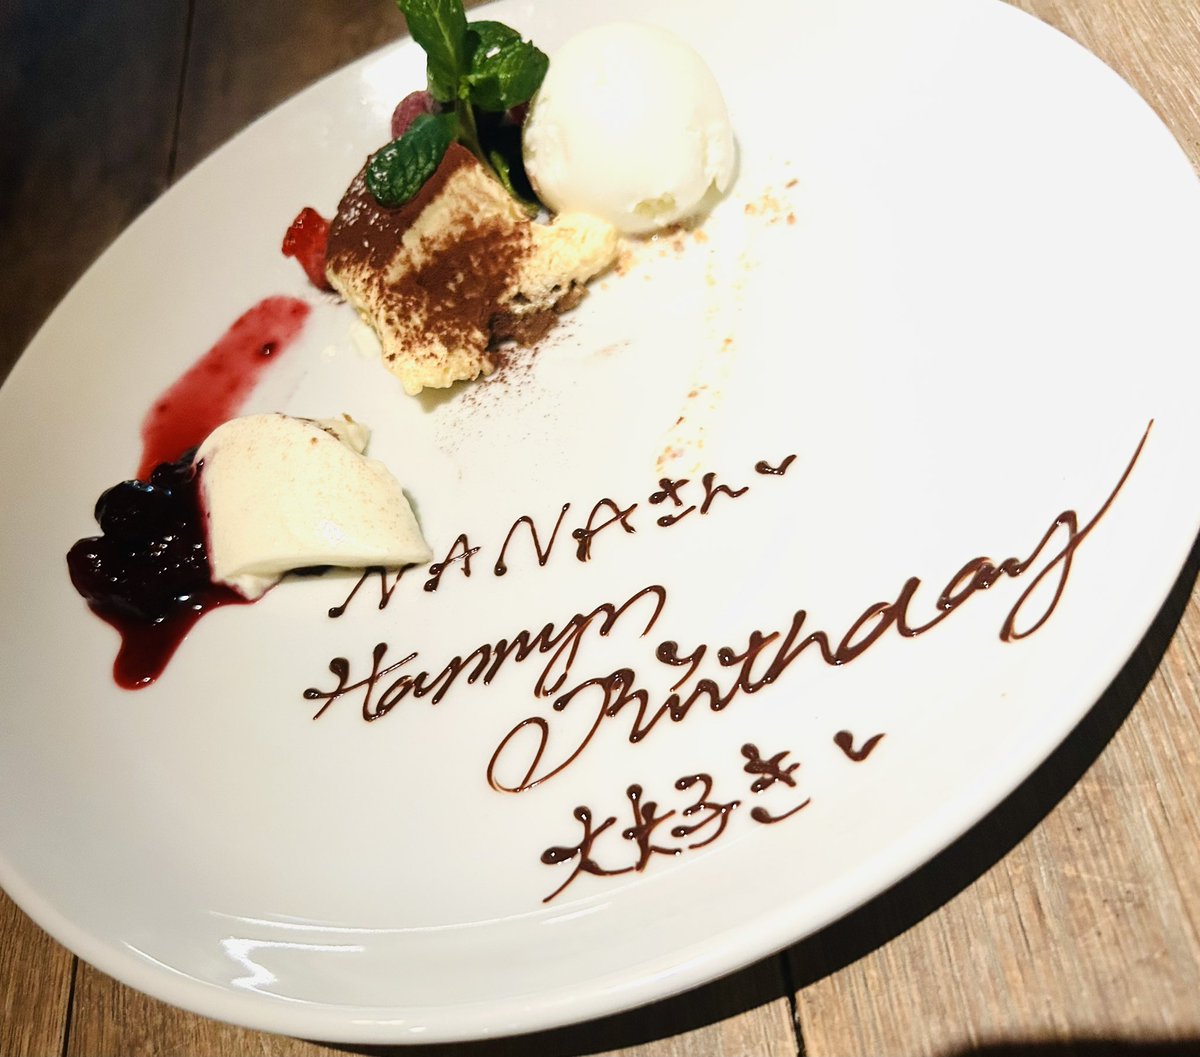 NANAさん
Happy
Birthday
大好き